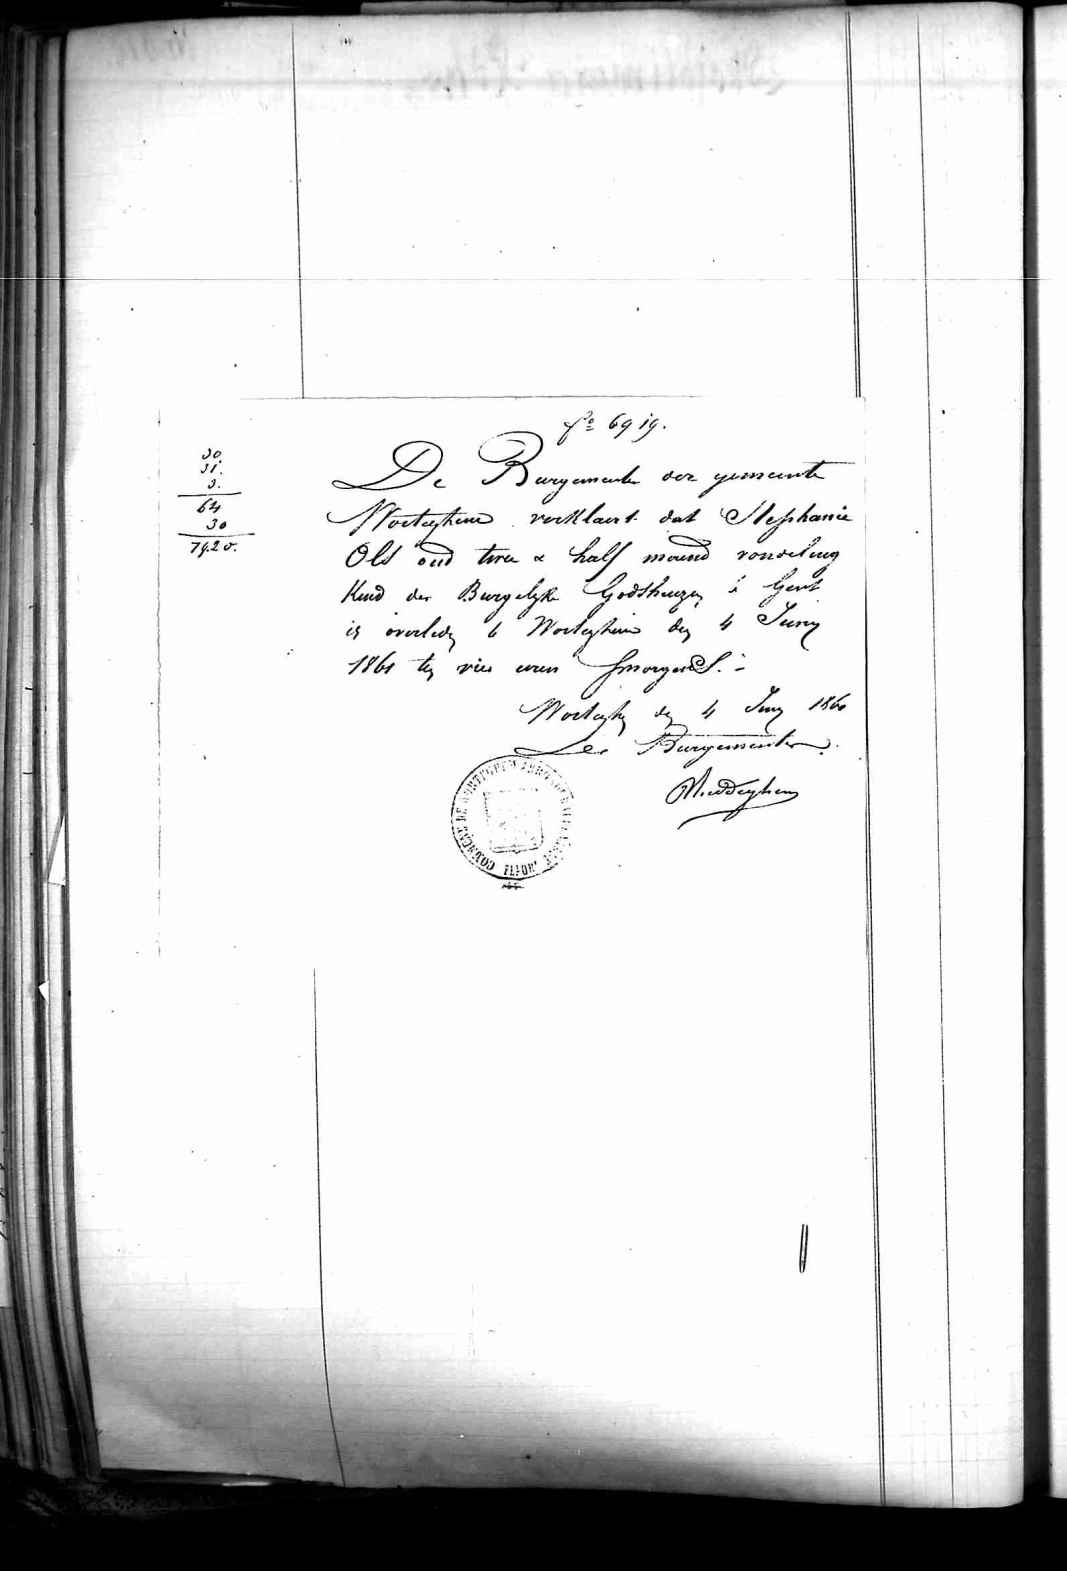 fo 69 19.
30.
31.
3.
64
30
De Burgemeester der gemeente
Worteghem verklaert dat Stephanie
Ols oud twee & half maend vondeling
Kind der Burgelyke Godshuizen à Gent
is overleden te Worteghem den 4 Juny
1861 ten vier uren smorgens.
Worteghem den 4 Juny 186
De Burgemeester
COMMUNE DE WORTEGEM